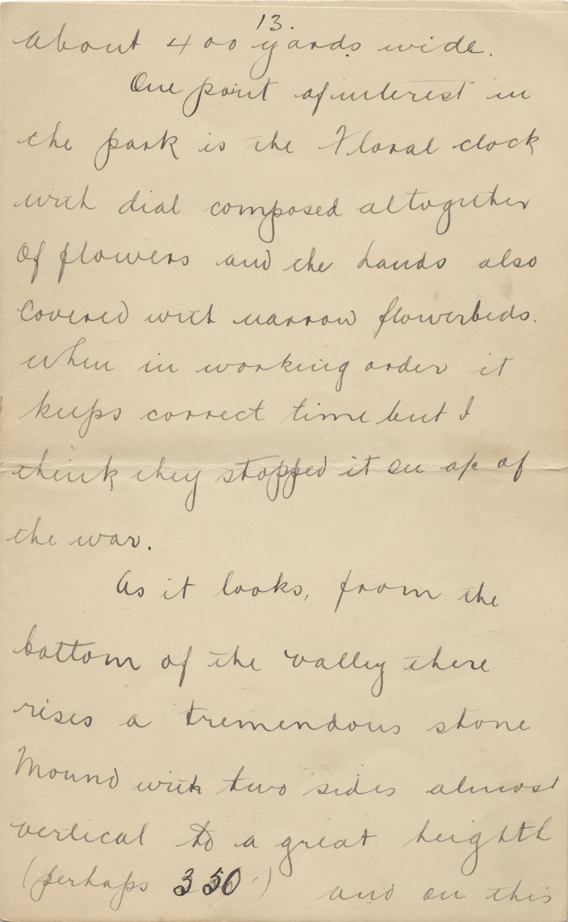 13.
about 400 yards wide.
One point of interest in
the park is the Floral clock
with dial composed altogether
of flowers and the hands also
covered with narrow flowerbeds.
when in working order it
keeps correct time but I
think they stopped it on a/c of
the war.
As it looks, from the
bottom of the valley there
rises a tremendous stone
Mound with two sides almost
vertical to a great heighth
(perhaps 350') and on this